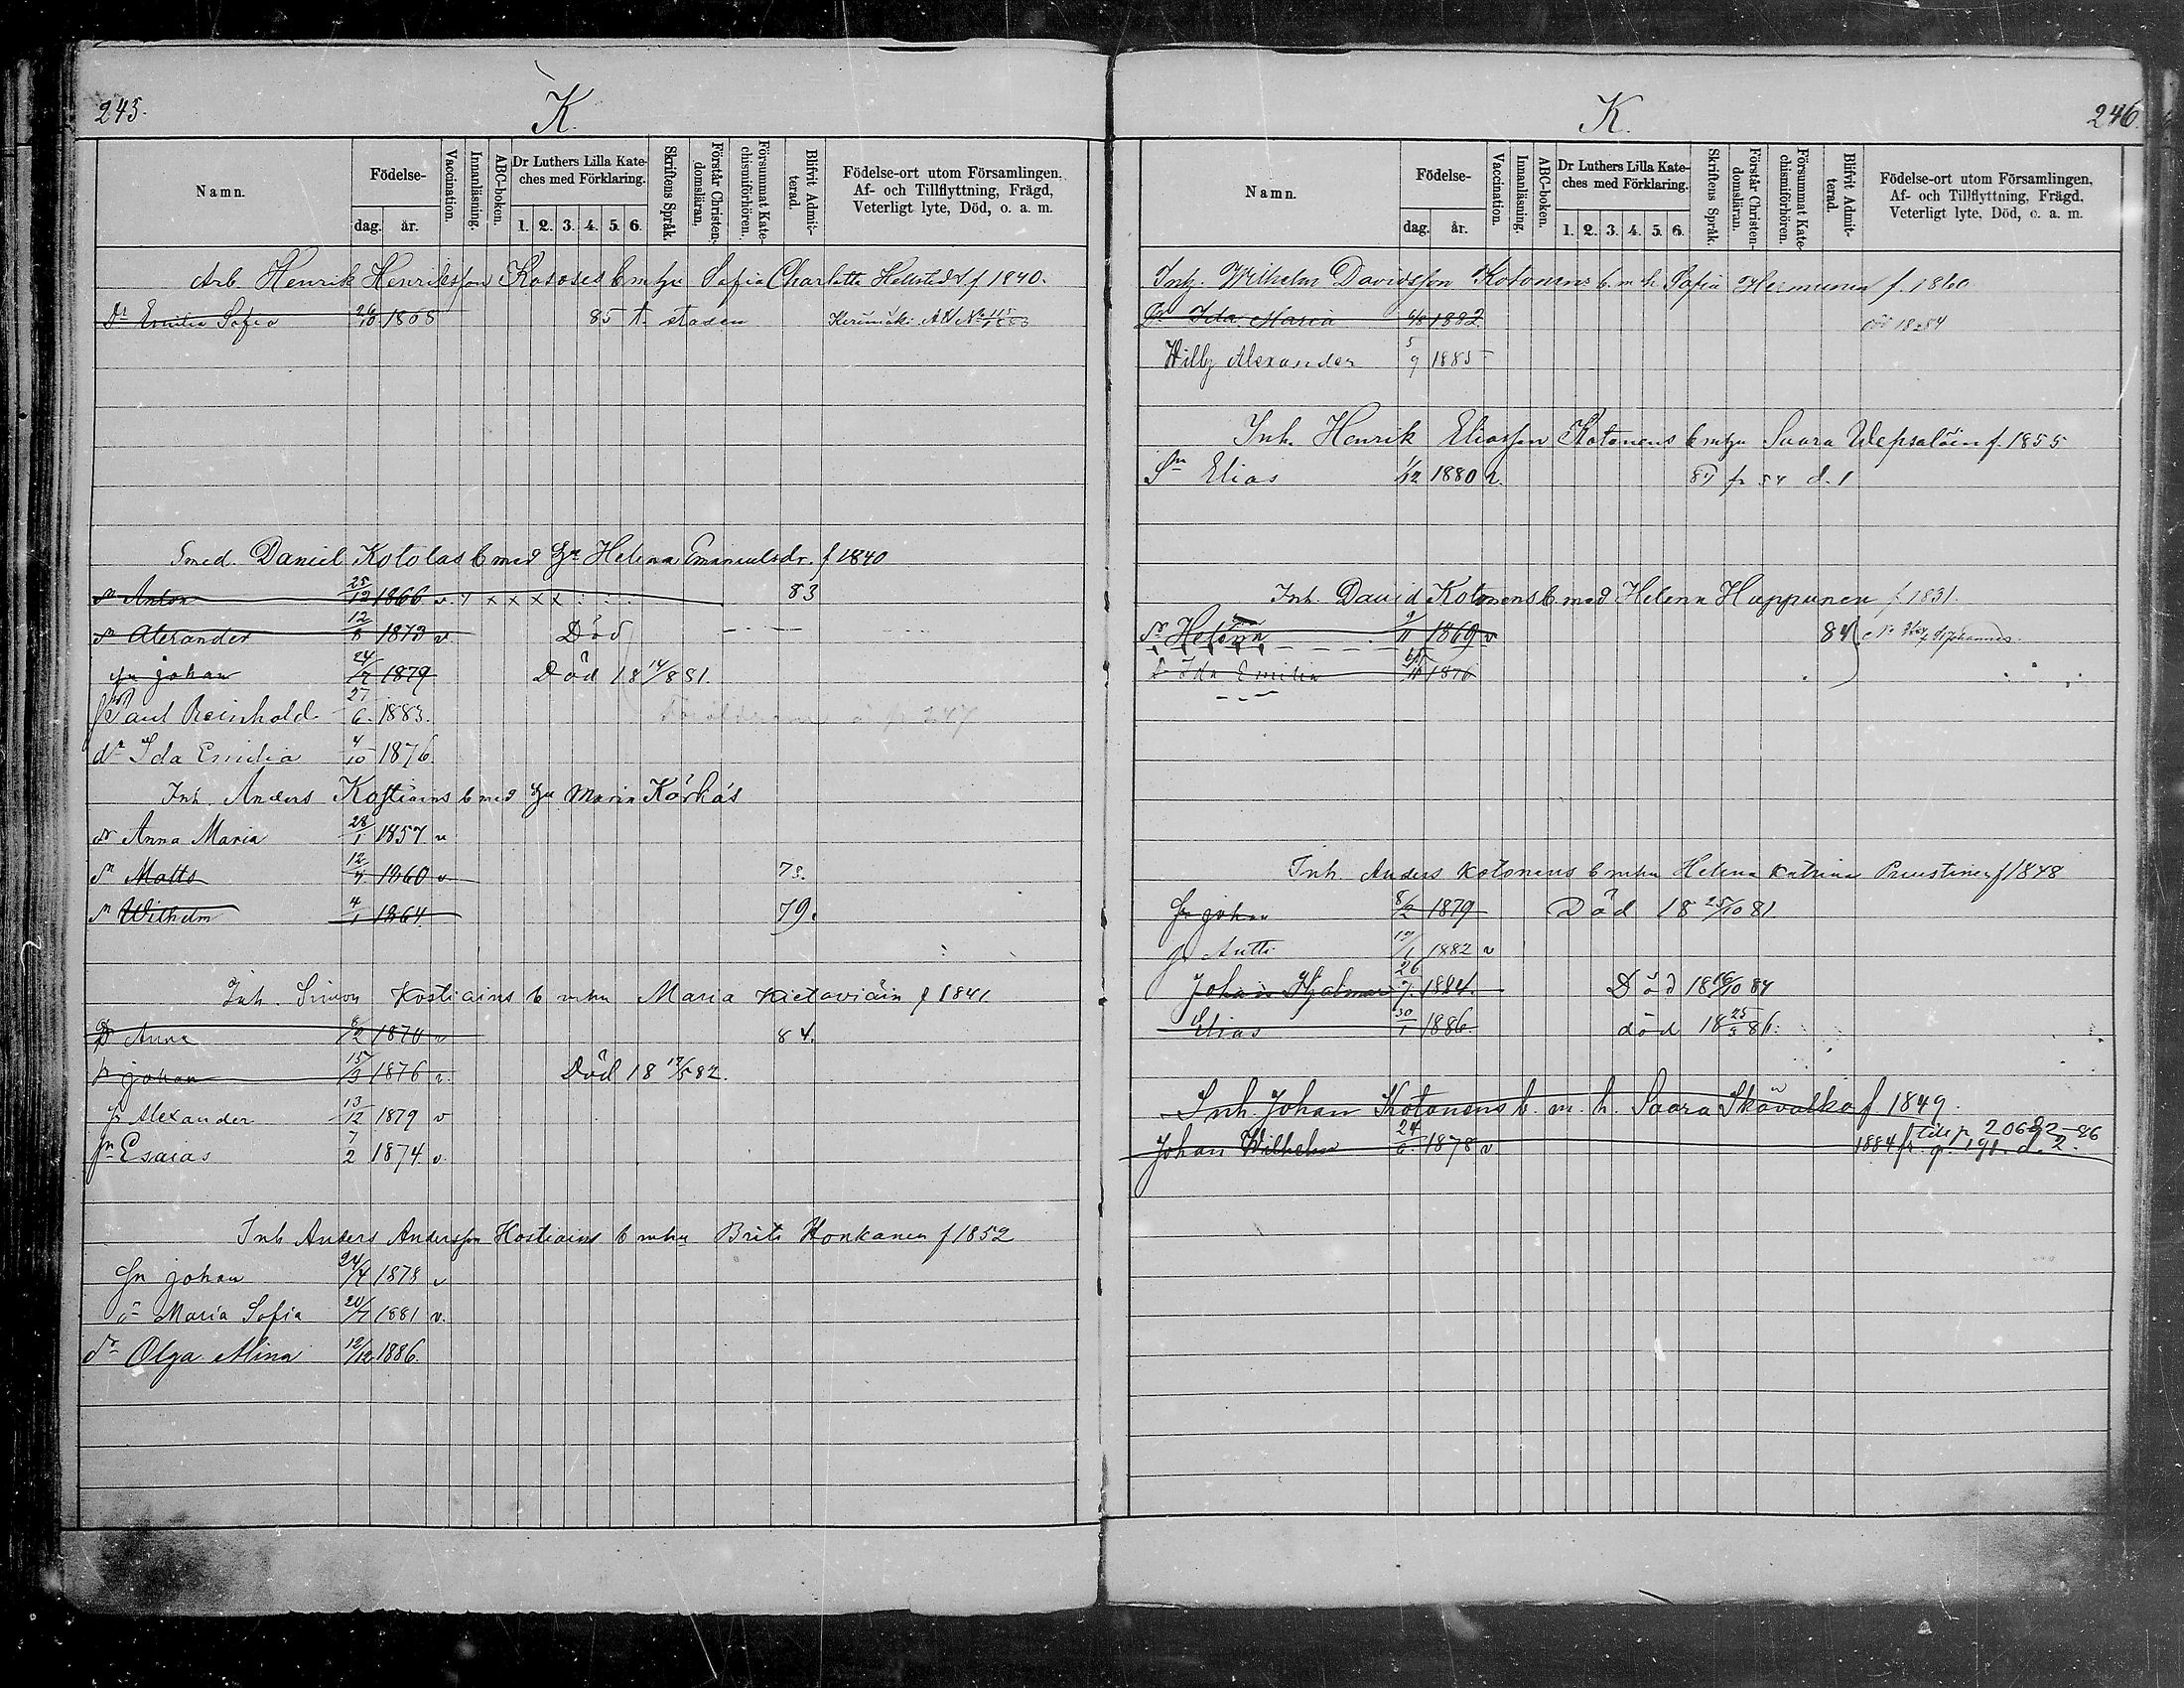 245.
K.
Namn.
Födelse-
dag.
år.
Vaccination.
Innanläsning.
ABC-boken.
Dr Luthers Lilla Kate-
ches med Förklaring.
1. 2. 3. 4. 5. 6.
Skriftens Språk.
Förstår Christen-
domsläran.
Försummat Kate-
chismiförhören.
Blifvit Admit-
terad.
Födelse-ort utom Församlingen.
Af- och Tillflyttning, Frägd,
Veterligt lyte, Död, o. a. m.
Arb. Henrik Henriksson Kososes b m hu Sofia Charlotta f 1840.
Dr Emilia Sofia 26/10 1868 85 t. staden Kerimäki
Smed. Daniel Kotolas b med hu Helena Emanuelsdr. f 1840
sn Anton 25/12 1866 v. x x x x x 83
sn Alexander 12/8 1873 v Död
sn johan 24/7 1879 Död 18 14/8 81.
Paul Reinhold 27/6 1883. 247
dr Ida Emilia 4/10 1876.
Inh. Anders Kostiains b med hu Maria Körkäs
dr Anna Maria 28/1 1857 v
sn Matts 12/4 1860 v 78.
sn Wilhelm 4/1 1864. 79.
Inh. Simon Kostiains b m hu Maria Kietäväin f 1841
Dr Anna 8/2 1870 v 84.
sn johan 15/3 1876 v. Död 18 17/5 82.
sn Alexander 13/12 1879 v
sn Esaias 7/2 1874 v.
Inh Anders Andersson Kostiains b m hu Brita Honkanen f 1852
sn johan 24/4 1878 v
dr Maria Sofia 20/7 1881 v.
dr Olga Alina 12/12 1886.
K.
246.
Namn.
Födelse-
dag.
år.
Vaccination.
Innanläsning.
ABC-boken.
Dr Luthers Lilla Kate-
ches med Förklaring.
1. 2. 3. 4. 5. 6.
Skriftens Språk.
Förstår Christen-
domsläran.
Försummat Kate-
chismiförhören.
Blifvit Admit-
terad.
Födelse-ort utom Församlingen,
Af- och Tillflyttning, Frägd,
Veterligt lyte, Död, o. a. m.
Inh. Wilhelm Davidsson Kotonens b. m h. Sofia Hermunen f. 1860
Dr Ida Maria 6/8 1882
Willy Alexander 5/9 1885
Inh. Henrik Eliasson Kotonens b m hu Saara Uepsäläin f. 1855
Sn Elias 1/12 1880 v. 87 fr 54 d. 1
Inh. David Kotonens b. med Helena Huppunen f 1831.
Dr Helena 9/11 1869 v 84
Ida Emilia 1876
Inh. Anders Kotonens b m hu Helena Katrina Puustinen f 1848
sn johan 8/2 1879 Död 18 25/10 81
sn Antti 17/1 1882 v
Johan Hjalmar 26/7 1884. Död 18 16/10 84
Elias 30/1 1886. död 18 25/3 86.
Inh. Johan Kotonens b. m. h. Saara Skövalko f. 1849.
till p 206 82-86
Johan Wilhelm 24/6 1878 v 1884 fr. p. 191. d. 2.